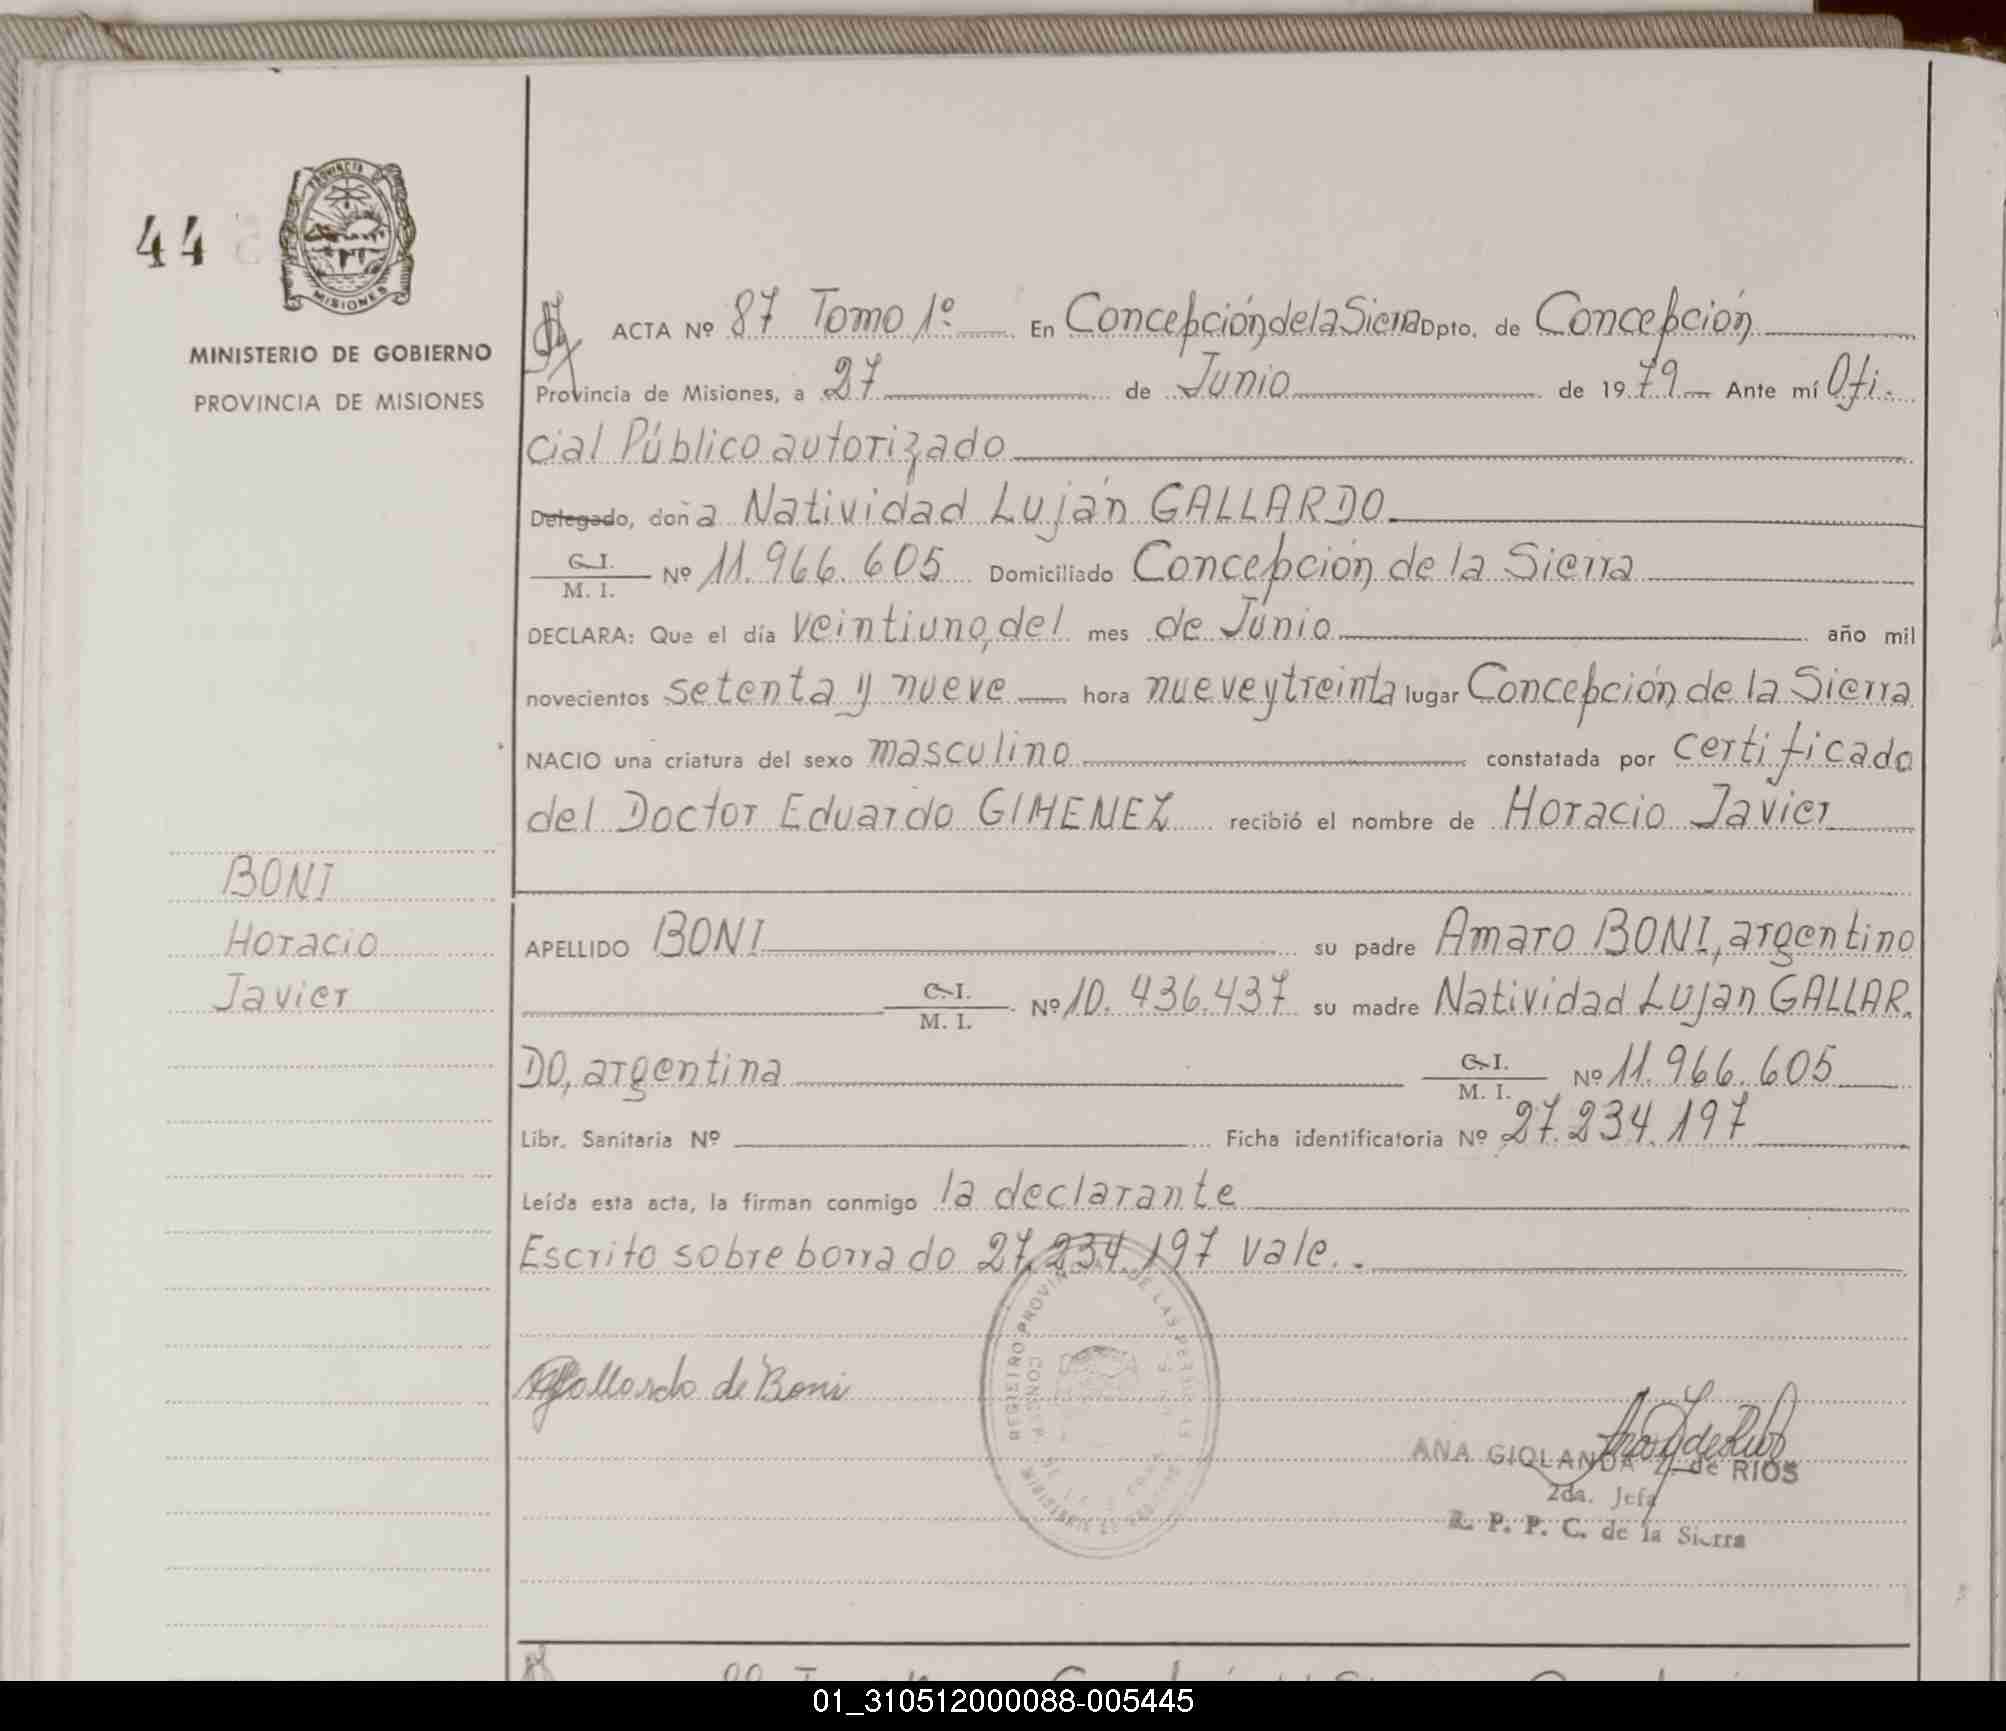 44
PROVINCIA DE
MISIONES
MINISTERIO DE GOBIERNO
PROVINCIA DE MISIONES
ACTA Nº 87 Tomo 1º En Concepción de la Sierra Dpto. de Concepción
Provincia de Misiones, a 27 de Junio de 1979 Ante mí Ofi-
cial Público autorizado
Delegado, doña Natividad Luján GALLARDO
C. I.
M. I. Nº 11.966.605 Domiciliado Concepción de la Sierra
DECLARA: Que el día veintiuno, del mes de Junio año mil
novecientos setenta y nueve hora nueve y treinta lugar Concepción de la Sierra
NACIO una criatura del sexo masculino constatada por certificado
del Doctor Eduardo GIMENEZ recibió el nombre de Horacio Javier
BONI
Horacio
Javier
APELLIDO BONI su padre Amaro BONI, argentino
C. I.
M. I. Nº 10.436.437 su madre Natividad Luján GALLAR-
DO, argentina C. I.
M. I. Nº 11.966.605
Libr. Sanitaria Nº Ficha identificatoria Nº 27.234.197
Leída esta acta, la firman conmigo la declarante
Escrito sobre borrado 27.234.197 vale.
REGISTRO PROVINCIAL DE LAS PERSONAS
Gallardo de Boni
ANA GIOLANDA Z. de RIOS
2da. Jefa
R. P. P. C. de la Sierra
01_310512000088-005445